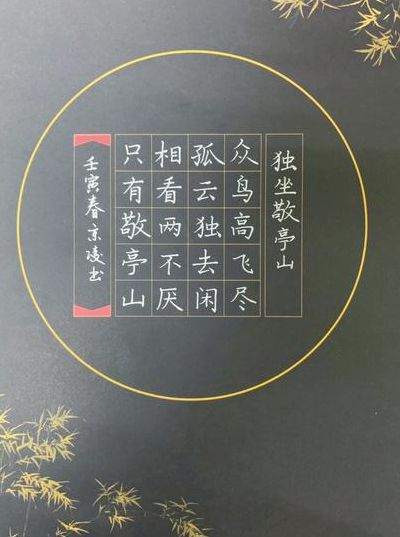 独坐敬亭山
众鸟高飞尽
孤云独去闲
相看两不厌
只有敬亭山
壬寅春京凌书